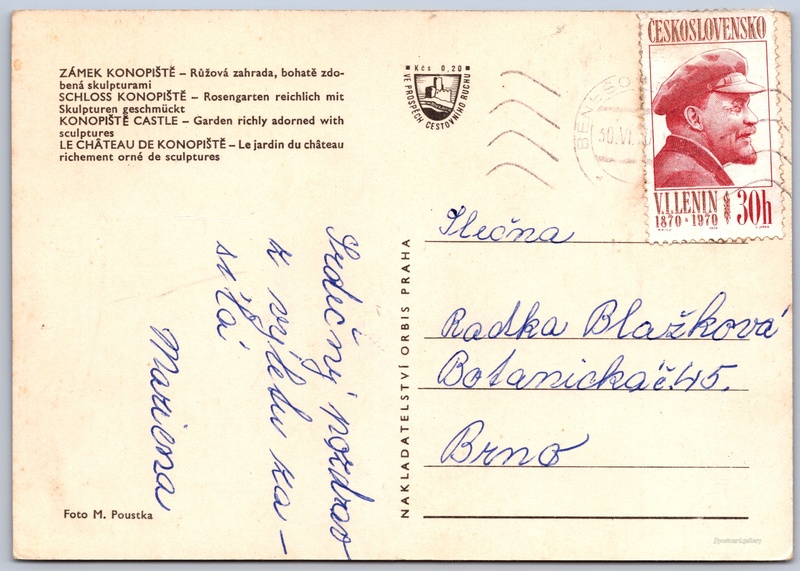 ZÁMEK KONOPIŠTĚ – Růžová zahrada, bohatě zdo-
bená skulpturami
SCHLOSS KONOPIŠTĚ – Rosengarten reichlich mit
Skulpturen geschmückt
KONOPIŠTĚ CASTLE – Garden richly adorned with
sculptures
LE CHÂTEAU DE KONOPIŠTĚ – Le jardin du château
richement orné de sculptures
Kčs 0,20
VE PROSPĚCH CESTOVNÍHO RUCHU
BENEŠO
30.VI.
ČESKOSLOVENSKO
V.I.LENIN
1870 1970
30h
Slečna
Radka Blažková
Botanická č. 45.
Brno
Srdečný pozdrav
z výletu za-
sílá
Mariena
NAKLADATELSTVÍ ORBIS PRAHA
Foto M. Poustka